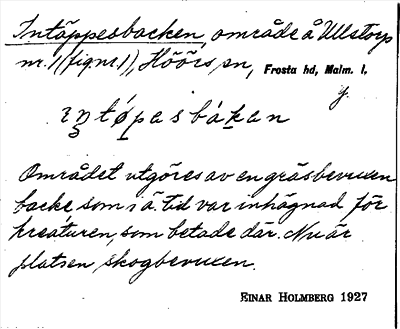 Intäppesbacken, område å Ullstorp
nr. 1 (fig nr. 1), Höörs sn, Frosta hd, Malm. l.
y.
ıntǿpasbákan
Området utgöres av en gräsbevuxen
backe, som i ä. tid var inhägnad för
kreaturen, som betade där. Nu är
platsen skogbevuxen.
EINAR HOLMBERG 1927